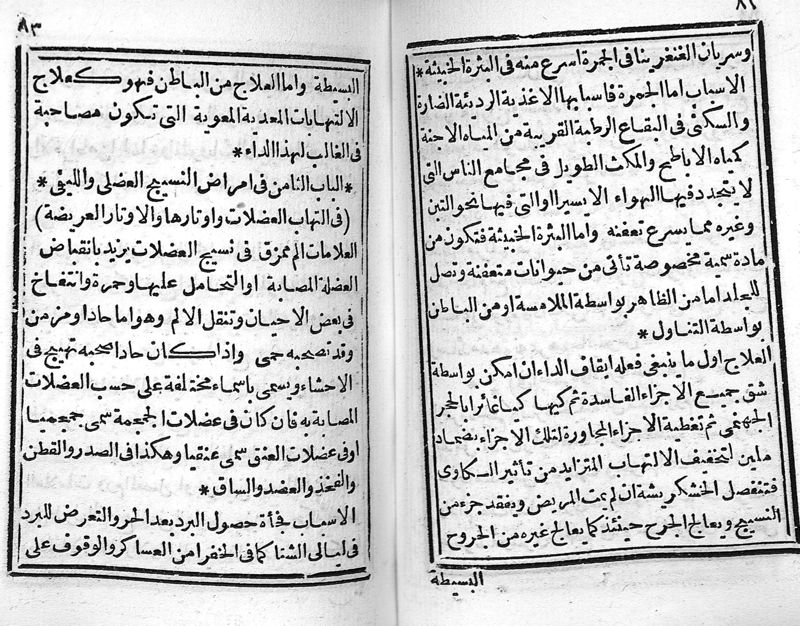 ٨٢
وسريان الغنغرينا فى الجمرة اسرع منه فى البثرة الخبيثة *
الاسباب اما الجمرة فاسبابها الاغذية الرديئة الضارة
والسكنى فى البقاع الرطبة القريبة من المياه الاجنة
كمياه الاباطيح والمكث الطويل فى مجامع الناس التى
لا يتجدد فيها الهواء الا يسيرا او التى فيها نحو التبن
وغيره مما يسرع تعفنه واما البثرة الخبيثة فتكون من
مادة سمية مخصوصة تأتى من حيوانات متعفنة وتصل
للجلد اما من الظاهر بواسطة الملامسة او من الباطن
بواسطة التناول *
العلاج اول ما ينبغى فعله ايقاف الداء ان امكن بواسطة
شق جميع الاجزاء الفاسدة ثم كيها كيا غائرا بالحجر
الجهنمى ثم تغطية الاجزاء المجاورة لتلك الاجزاء بضماد
ملين لتخفيف الالتهاب المتزايد من تأثير السكاوى
فتنفصل الخشكريشة ان لم يمت المريض ويفقد جزء من
النسيج ويعالج الجرح حينئذ كما يعالج غيره من الجروح
البسيطة
٨٣
البسيطة واما العلاج من الباطن فهو كعلاج
الالتهابات المعدية المعوية التى تكون مصاحبة
فى الغالب لهذا الداء *
* الباب الثامن فى امراض النسيج العضلى والليفى *
(فى التهاب العضلات واوتارها والاوتار العريضة)
العلامات الم ممزق فى نسيج العضلات يزيد بانقباض
العضلة المصابة او التحامل عليها وحمرة وانتفاخ
فى بعض الاحيان وتنقل الالم وهو اما حاد او مزمن
وقد تصحبه حمى واذا كان حادا صحبه تهييج فى
الاحشاء ويسمى باسماء مختلفة على حسب العضلات
المصابة به فان كان فى عضلات الجمجمة سمى جمجميا
او فى عضلات العنق سمى عنقيا وهكذا فى الصدر والقطن
والفخذ والعضد والساق *
الاسباب فجأة حصول البرد بعد الحر والتعرض للبرد
فى ليالى الشتا كما فى الخفرا من العساكر والوقوف على